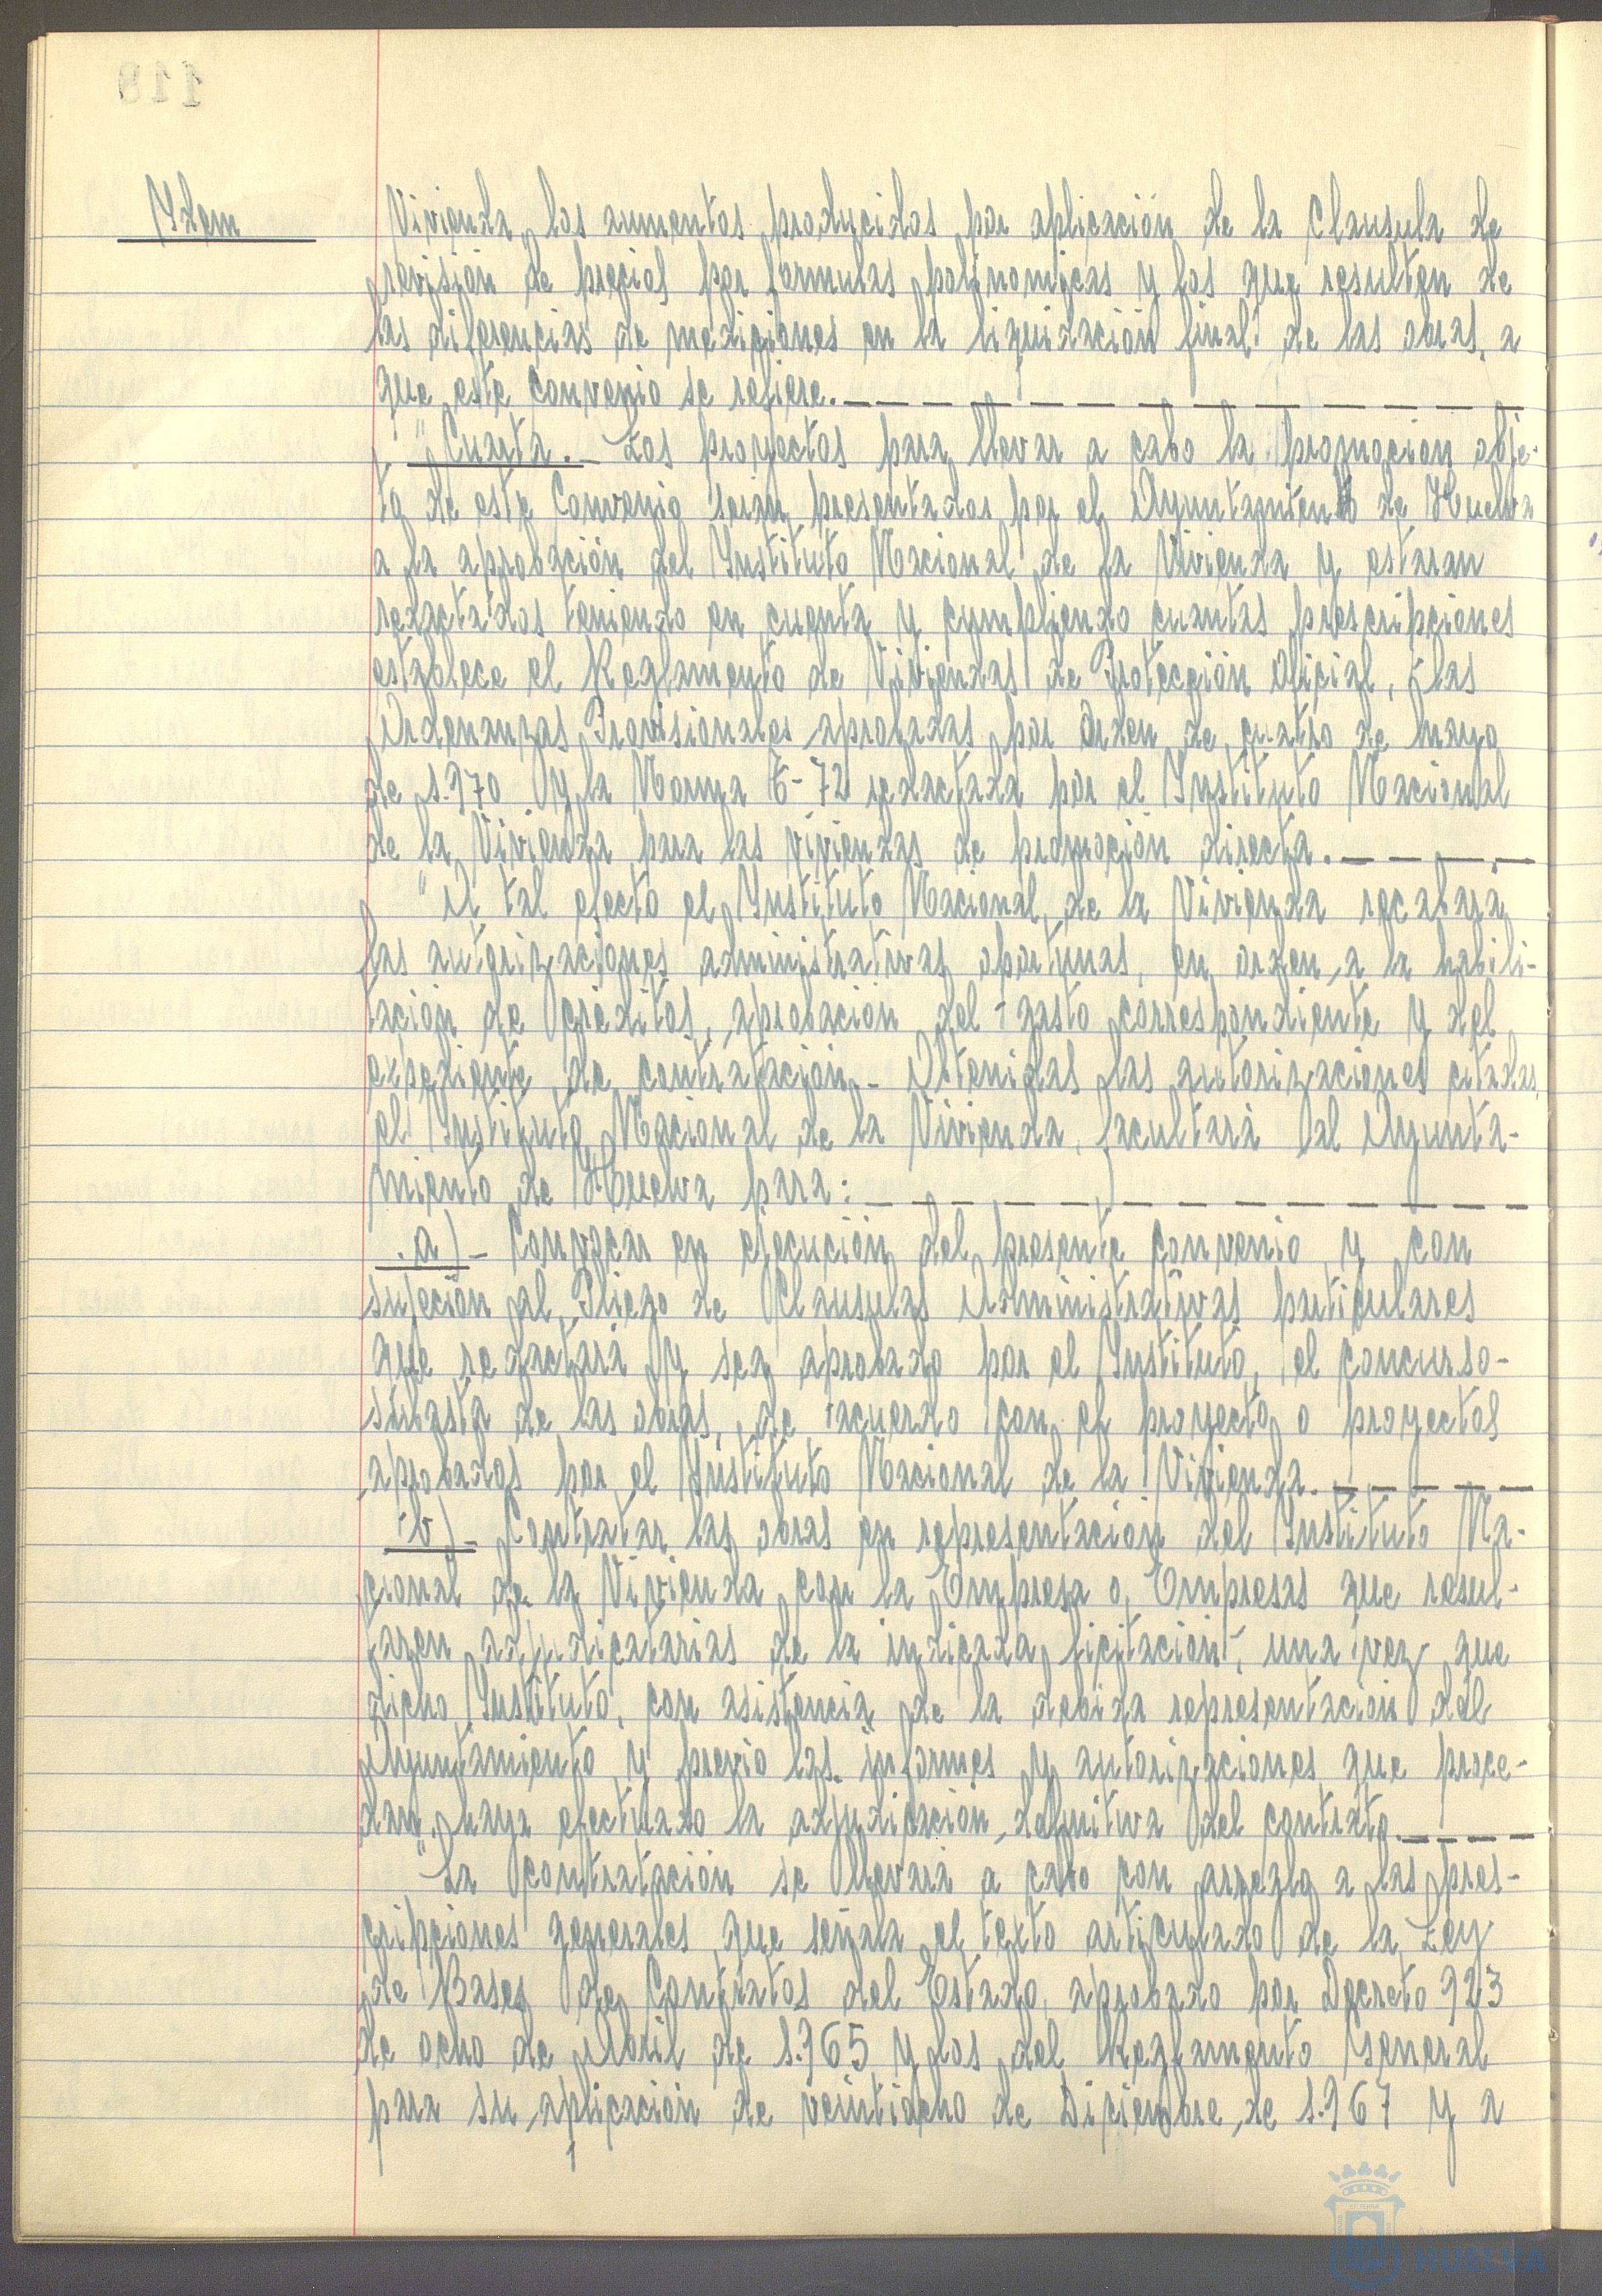 Ydem
Vivienda, los aumentos producidos por aplicación de la Clausula de
revisión de precios por formulas polinomicas y los que resulten de
las diferencias de mediciones en la liquidación final de las obras, a
que este Convenio se refiere.
"Cuarta.- Los proyectos para llevar a cabo la promocion obje-
to de este Convenio serán presentados por el Ayuntamiento de Huelva
a la aprobación del Instituto Nacional de la Vivienda y estaran
redactados teniendo en cuenta y cumpliendo cuantas prescripciones
establece el Reglamento de Viviendas de Protección Oficial, las
Ordenanzas Provisionales aprobadas por Orden de cuatro de mayo
de 1.970 y la Norma E-72 redactada por el Instituto Nacional
de la Vivienda para las viviendas de promoción directa.
"A tal efecto el Instituto Nacional de la Vivienda recabará
las autorizaciones administrativas oportunas, en orden a la habili-
tación de créditos, aprobación del gasto correspondiente y del
expediente de contratación.- Obtenidas las autorizaciones citadas,
el Instituto Nacional de la Vivienda, facultará al Ayunta-
miento de Huelva para:
a)- Convocar en ejecución del presente Convenio y con
sujeción al Pliego de Clausulas Administrativas particulares
que redactará y sea aprobado por el Instituto, el concurso-
subasta de las obras, de acuerdo con el proyecto o proyectos
aprobados por el Instituto Nacional de la Vivienda.
b)- Contratar las obras en representación del Instituto Na-
cional de la Vivienda con la Empresa o Empresas que resul-
taren adjudicatarias de la indicada licitación, una vez que
dicho Instituto, con asistencia de la debida representación del
Ayuntamiento y previo las informes y autorizaciones que proce-
dan, haya efectuado la adjudicación definitiva del contrato.
"La contratación se llevará a cabo con arreglo a las pres-
cripciones generales que señala el texto articulado de la Ley
de Bases de Contratos del Estado, aprobado por Decreto 923
de ocho de Abril de 1.965 y los del Reglamento General
para su aplicación de veintiocho de Diciembre de 1.967 y a
HUELVA